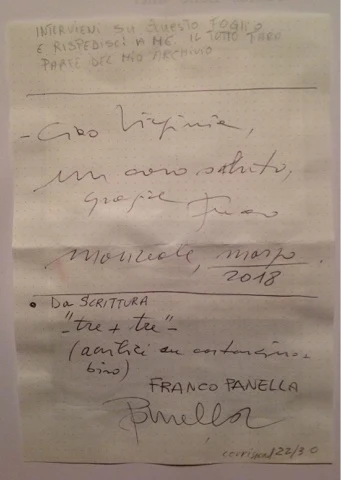 INTERVIENI SU QUESTO FOGLIO
E RISPEDISCI A ME. IL TUTTO FARÀ
PARTE DEL MIO ARCHIVIO
- Ciao Virginia,
un caro saluto,
grazie Franco
Monreale, marzo
2018
• Da SCRITTURA
"tre + tre"
(acrilici su cartoncino e
biro)
FRANCO PANELLA
Panella
22/30